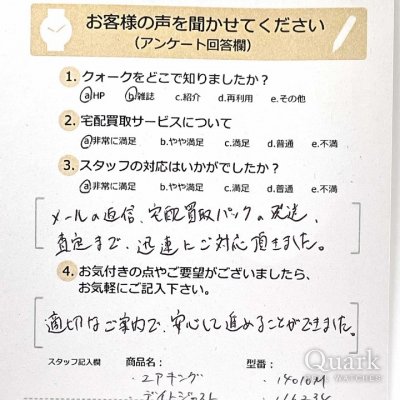 お客様の声を聞かせてください
（アンケート回答欄）
1. クォークをどこで知りましたか？
a.HP b.雑誌 c.紹介 d.再利用 e.その他
2. 宅配買取サービスについて
a.非常に満足 b.やや満足 c.満足 d.普通 e.不満
3. スタッフの対応はいかがでしたか？
a.非常に満足 b.やや満足 c.満足 d.普通 e.不満
メールの返信、宅配買取パックの発送、
査定まで、迅速にご対応頂きました。
4. お気付きの点やご要望がございましたら、
お気軽にご記入下さい。
適切なご案内で、安心して進めることができました。
スタッフ記入欄 商品名： 型番：
・エアキング ・14010M
・デイトジャスト ・116234
Quark
WATCHES